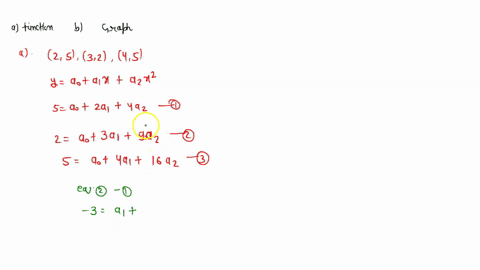 a) function b) Graph
a). (2,5), (3,2), (4,5)
y = a₀ + a₁x + a₂x²
5 = a₀ + 2a₁ + 4a₂ —①
2 = a₀ + 3a₁ + 9a₂ —②
5 = a₀ + 4a₁ + 16a₂ —③
eq. ② - ①
-3 = a₁ +